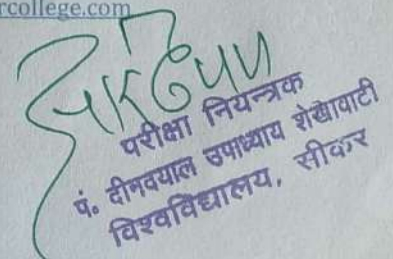 rcollege.com
परीक्षा नियन्त्रक
पं. दीनदयाल उपाध्याय शेखावाटी
विश्वविद्यालय, सीकर